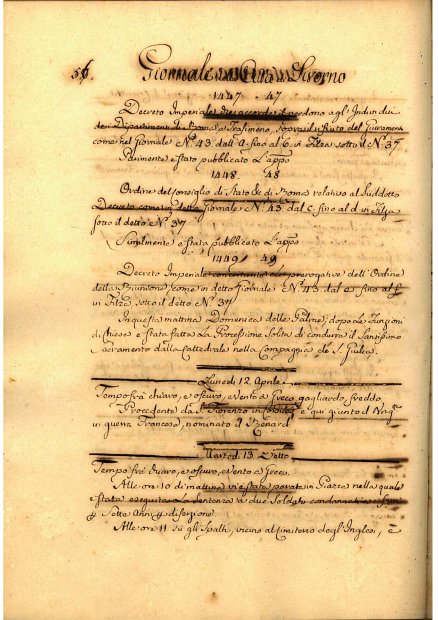 56. Giornale di Livorno
1447. 47
Decreto Imperiale che accorda il perdono agl'Individui
dei Dipartimenti di Roma e Trasimeno, sopra il rifiuto del Giuramento
come nel Giornale N.° 43. dall'a. fino al b. in Filza sotto il N.° 37
Parimente è stato pubblicato l'appo
1448. 48
Ordine del Consiglio di Stato di Roma relativo al suddetto
Decreto come in detto Giornale N.° 43. dal c. fino al d. in Filza
sotto il detto N.° 37
Similmente è stato pubblicato l'appo
1449. 49
Decreto Imperiale concernente le prerogative dell'Ordine
della Riunione, come in detto Giornale N.° 43 dal e. fino al f.
in Filza sotto il detto N.° 37
In questa mattina Domenica delle Palme, dopo le Funzioni
di Chiesa è stata fatta la Processione Solita di condurre il Santissimo
Sacramento dalla Cattedrale nella Compagnia di S. Giulia.
Lunedì 12 Aprile
Tempo frà chiaro, e oscuro, e Vento à Greco gagliardo, freddo
Procedente da S. Fiorenzo in è quì giunto il
in guerra Francese, nominato il Renard
Martedì 13. Detto
Tempo frà chiaro, e oscuro, e Vento à Greco.
Alle ore 10 di mattina vi è stata parata in Piazza nella quale
è stata eseguita la Sentenza a due Soldati condannati ai ferri
p. Sette Anni p. diserzione
Alle ore 11 sù gli Spalti, vicino al Cimiterio degl'Inglesi, è